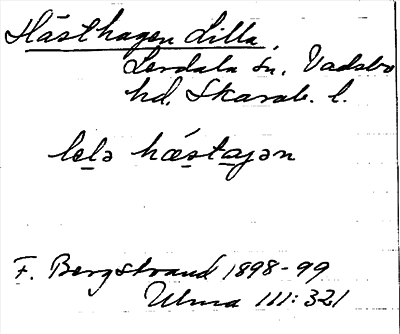 Hästhagen Lilla,
Lerdala sn, Vadsbo
hd, Skarab. l.
lelə hǽstajən
F. Bergstrand 1898-99
Ulma 111:321